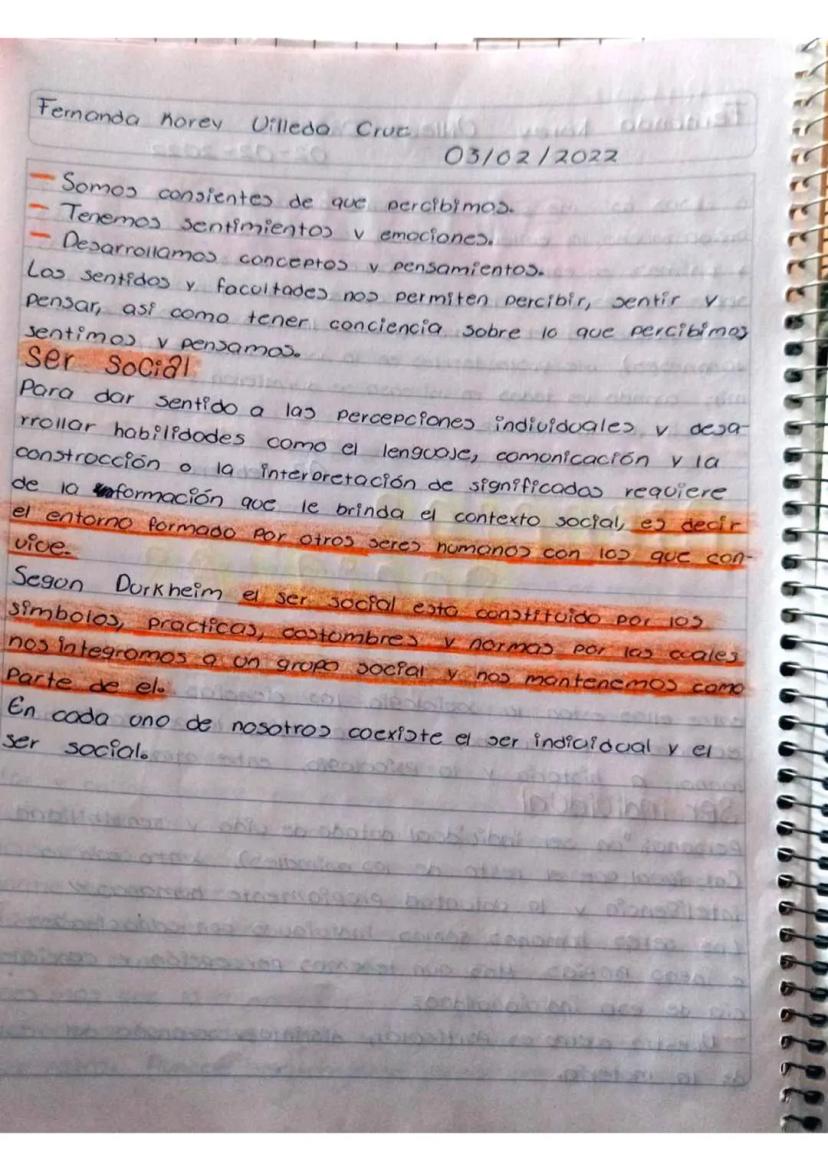 Fernanda Norey Villeda Cruz
03/02/2022
- Somos consientes de que percibimos.
- Tenemos sentimientos y emociones.
- Desarrollamos conceptos y pensamientos.
Los sentidos y facultades nos permiten percibir, sentir y
pensar, así como tener conciencia sobre lo que percibimos
sentimos y pensamos.
Ser Social
Para dar sentido a las percepciones individuales y desa-
rrollar habilidades como el lenguaje, comunicación y la
construcción o la interpretación de significados requiere
de la información que le brinda el contexto social, es decir
el entorno formado por otros seres humanos con los que con-
vive.
Segun Durkheim el ser social esta constituido por los
simbolos, practicas, costumbres y normas por las cuales
nos integramos a un grupo social y nos mantenemos como
parte de el.
En cada uno de nosotros coexiste el ser indicidual y el
ser social.